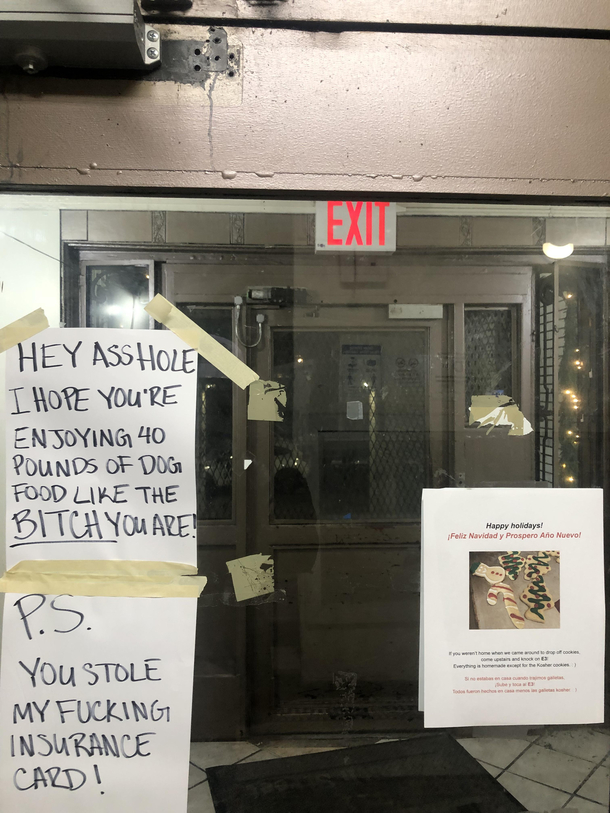 EXIT
HEY ASSHOLE
I HOPE YOU'RE
ENJOYING 40
POUNDS OF DOG
FOOD LIKE THE
BITCH YOU ARE!
P.S.
YOU STOLE
MY FUCKING
INSURANCE
CARD!
Happy holidays!
¡Feliz Navidad y Prospero Año Nuevo!
If you weren't home when we came around to drop off cookies,
come upstairs and knock on E3!
Everything is homemade except for the Kosher cookies. : )
Si no estabas en casa cuando trajimos galletas,
¡Sube y toca al E3!
Todos fueron hechos en casa menos las galletas kosher. : )